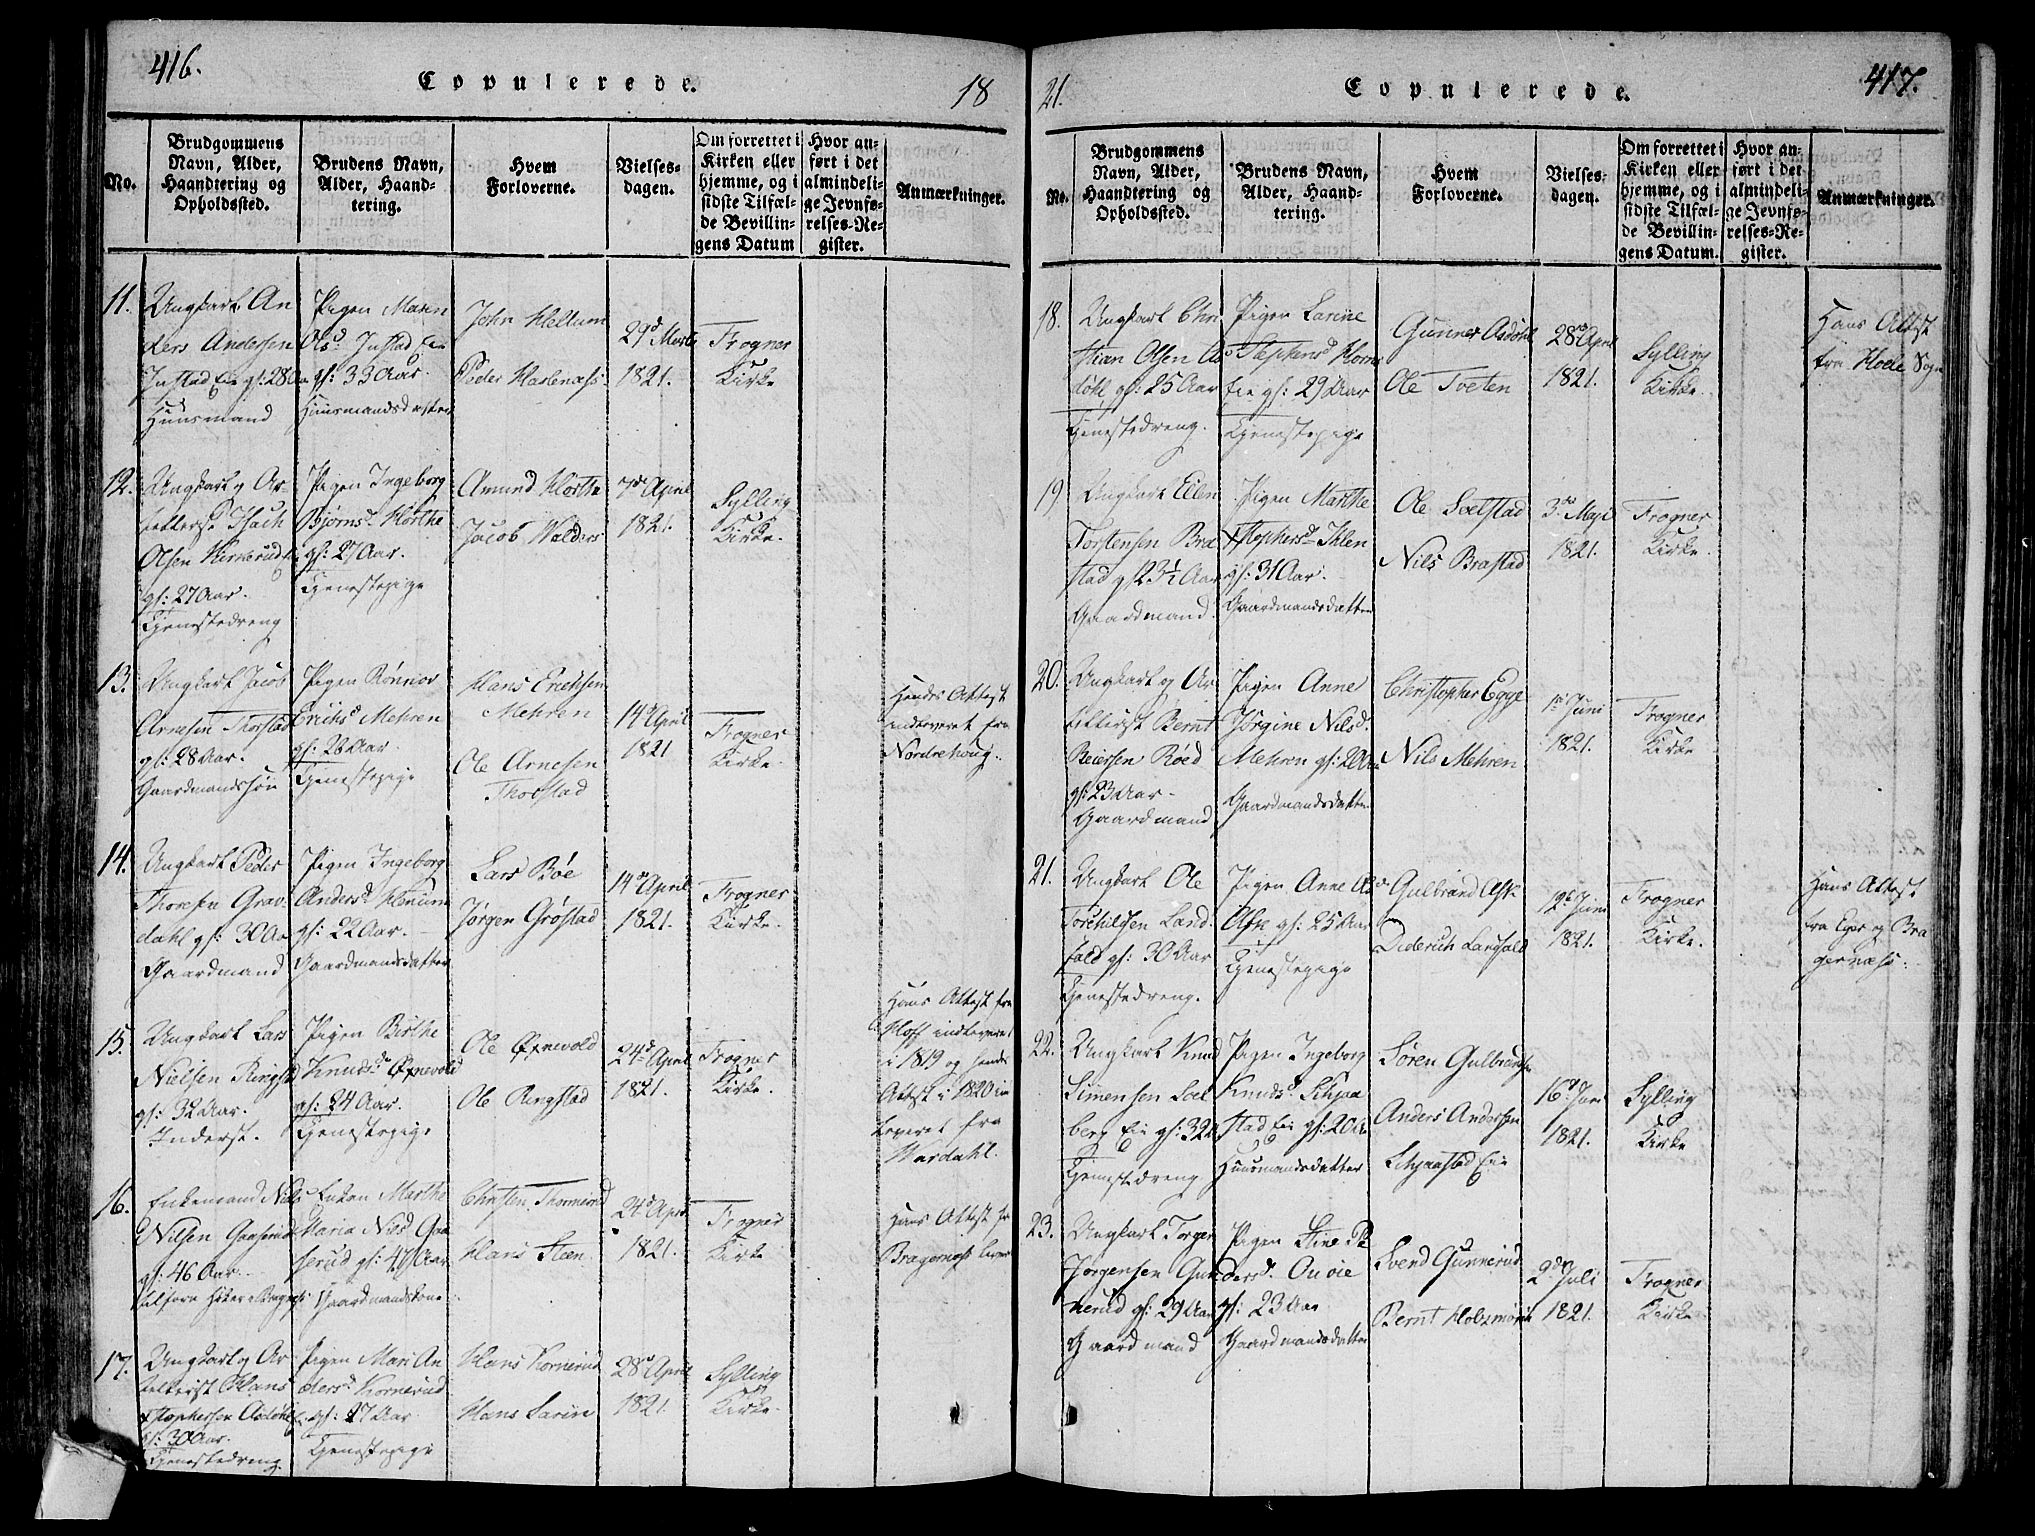 416.
Copulerede.
18
No.
Brudgommens
Navn, Alder,
Haandtering og
Opholdssted.
Brudens Navn,
Alder, Haand-
tering.
Hvem
Forloverne.
Vielses-
dagen.
Om forrettet i
Kirken eller
hjemme, og i
sidste Tilfæl-
de Bevillin-
gens Datum
Hvor an-
ført i det
almindeli-
ge Jevnfø-
relses-Re-
gister.
Anmærkninger.
11.
Ungkarl An
ders Andersen
Justad Eie gl: 28 Aar
Huusmand
Pigen Maren
Olsd. Justad Eie
gl: 33 Aar.
Huusmandsdatter
John Hellum
Peder Haslenæss.
29de Marts
1821.
Frogner
Kirke
12.
Ungkarl og Ar-
tillerist Isach
Olsen
gl: 27 Aar.
Tjenestedreng
Pigen Ingeborg
Bjørnsd. Hørthe
gl: 27 Aar.
Tjenestepige
Amund Hørthe
Jacob Walders
7de April
1821.
Sylling
Kirke.
13.
Ungkarl Jacob
Arnesen Thorstad
gl: 28 Aar.
Gaardmandssøn
Pigen Rønnov
Erichsd Mehren
gl: 26 Aar.
Tjenestepige
Hans Erichsen
Mehren
Ole Arnesen
Thorstad
14de April
1821
Frogner
Kirke.
Hendes Attest
indleveret fra
Nordrehoug.
14.
Ungkarl Peder
Thoresen Grav-
dahl gl: 30 Aar
Gaardmand
Pigen Ingeborg
Andersd. Hennum
gl: 22 Aar.
Gaardmandsdatter
Lars Bøe
Jørgen Grøstad
14de April
1821.
Frogner
Kirke.
15.
Ungkarl Lars
Nielsen Ringstad
gl: 32 Aar.
Inderst.
Pigen Birthe
Knudsd. Øfnevold
gl: 24 Aar.
Tjenestepige
Ole Øfnevold
Ole Ringstad
24de April
1821.
Frogner
Kirke.
Hans Attest fra
Hoff indleveret
i 1819 og hendes
Attest i 1820 in
leveret fra
Wardahl.
16.
Enkemand Niels
Nilsen Gaaserud
gl: 46 Aar.
Enken Marthe
Maria Nielsd Gaa
serud gl: 47 Aar
Gaardmandskone
Christen Thormerud
Hans Steen
24de April
1821.
Frogner
Kirke
Hans Attest fr
Bragernæs
17.
Ungkarl og Ar
tillerist Hans
Stophersen Asdøhl
gl: 30 Aar.
Tjenestedreng
Pigen Mari An
dersd. Kornerud
gl: 27 Aar
Tjenestepige
Hans Kornerud
Hans Sørum
28de April
1821.
Sylling
Kirke.
21.
Copulerede.
417.
No.
Brudgommens
Navn, Alder,
Haandtering og
Opholdssted.
Brudens Navn,
Alder, Haand-
tering.
Hvem
Forloverne.
Vielses-
dagen.
Om forrettet i
Kirken eller
hjemme, og i
sidste Tilfæl-
de Bevillin-
gens Datum.
Hvor an-
ført i det
almindeli-
ge Jevnfø-
relses-Re-
gister.
Anmærkninger.
18.
Ungkarl Chri
stian Olsen As
døhl, gl: 25 Aar
Tjenestedreng.
Pigen Karine
Stephensd Horns
Eie gl: 29 Aar
Tjenestepige
Gunner Asdøhl
Ole Tveten
28de April
1821.
Sylling
Kirke.
Hans Attest
fra Hole Sogn
19
Ungkarl Ellen
Torstensen Bra
stad gl 23½ Aar
Gaardmand.
Pigen Marthe
Stophersd Ihlen
gl: 31 Aar.
Gaardmandsdatter
Ole Solstad
Nils Brastad
3de Maji
1821.
Frogner
Kirke.
20.
Ungkarl og Ar
tillerist Bernt
Reiersen Røed
gl: 23 Aar.
Gaardmand
Pigen Anne
Jørgine Nilsd.
Mehren gl: 20 Aar
Gaardmandsdatter
Christopher Egge
Nils Mehren
1ste Juni
1821.
Frogner
Kirke
21.
Ungkarl Ole
Torchildsen Land
fald gl: 30 Aar
Tjenestedreng.
Pigen Anne
Ask gl: 25 Aar
Tjenestepige
Gulbrand Ask
Diderich Langfald
12te Juni
1821.
Frogner
Kirke.
Hans Attest
fra Eger og Bra
gernæss.
22.
Ungkarl Knud
Simensen Sol
berg Eie gl: 32 A
Tjenestedreng
Pigen Ingeborg
Knudsd. Schjaa
stad Eie gl: 20 Aar
Huusmandsdatter
Søren Gulbrandsen
Anders Andersen
Schjaastad Eie
16de Juni
1821.
Sylling
Kirke
23.
Ungkarl Torger
Jørgensen Gun
nerud gl: 29 Aar
Gaardmand
Pigen Stine Pe
dersd. Ouøie
gl: 23 Aar
Gaardmandsdatter
Svend Gunnerud
Bernt Holtzmørch
2den Juli
1821.
Frogner
Kirke